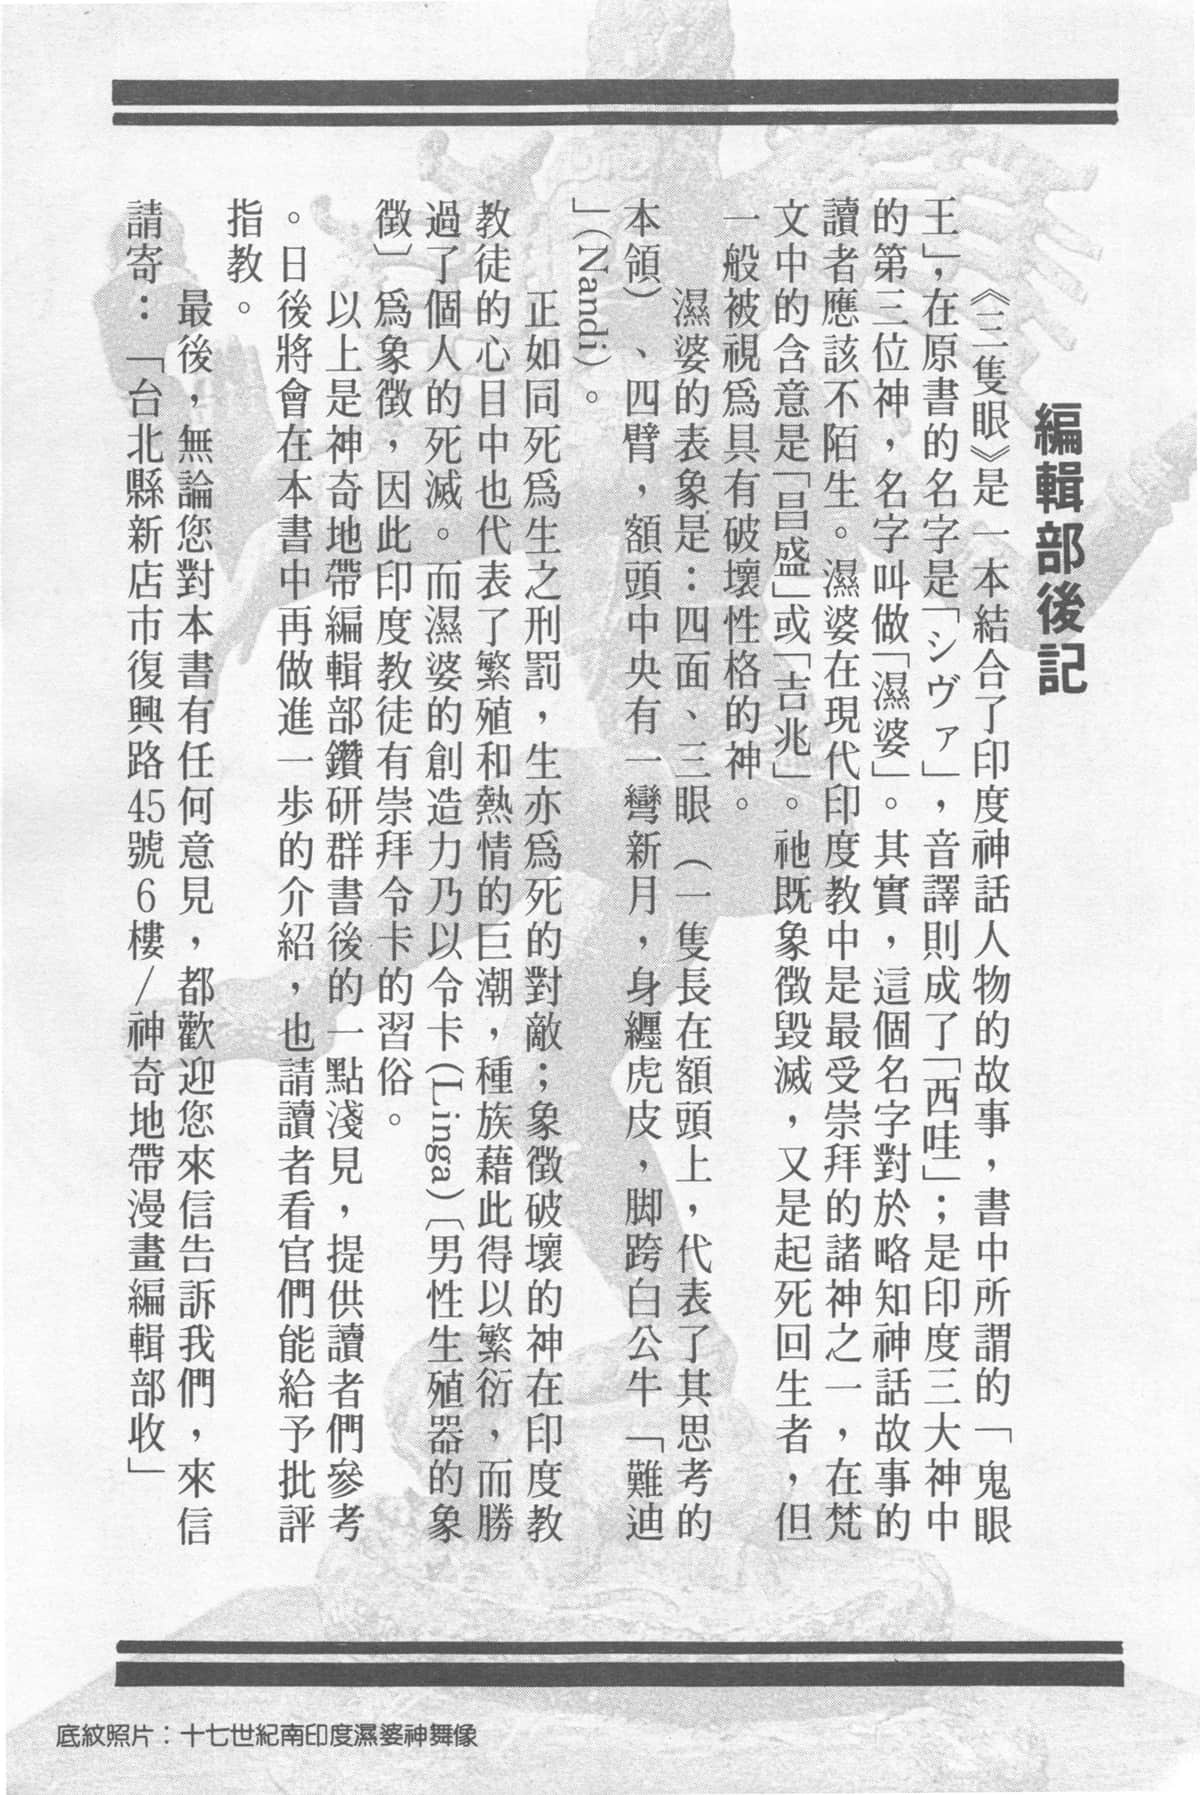 編輯部後記
《三隻眼》是一本結合了印度神話人物的故事，書中所謂的「鬼眼
王」，在原書的名字是「シヴァ」，音譯則成了「西哇」；是印度三大神中
的第三位神，名字叫做「濕婆」。其實，這個名字對於略知神話故事的
讀者應該不陌生。濕婆在現代印度教中是最受崇拜的諸神之一，在梵
文中的含意是「昌盛」或「吉兆」。祂既象徵毀滅，又是起死回生者，但
一般被視爲具有破壞性格的神。
濕婆的表象是：四面、三眼（一隻長在額頭上，代表了其思考的
本領）、四臂，額頭中央有一彎新月，身纏虎皮，脚跨白公牛「難迪
」(Nandi)。
正如同死爲生之刑罰，生亦爲死的對敵；象徵破壞的神在印度教
教徒的心目中也代表了繁殖和熱情的巨潮，種族藉此得以繁衍，而勝
過了個人的死滅。而濕婆的創造力乃以令卡(Linga)〔男性生殖器的象
徵〕爲象徵，因此印度教徒有崇拜令卡的習俗。
以上是神奇地帶編輯部鑽研群書後的一點淺見，提供讀者們參考
。日後將會在本書中再做進一步的介紹，也請讀者看官們能給予批評
指教。
最後，無論您對本書有任何意見，都歡迎您來信告訴我們，來信
請寄：「台北縣新店市復興路45號6樓/神奇地帶漫畫編輯部收」
底紋照片：十七世紀南印度濕婆神舞像